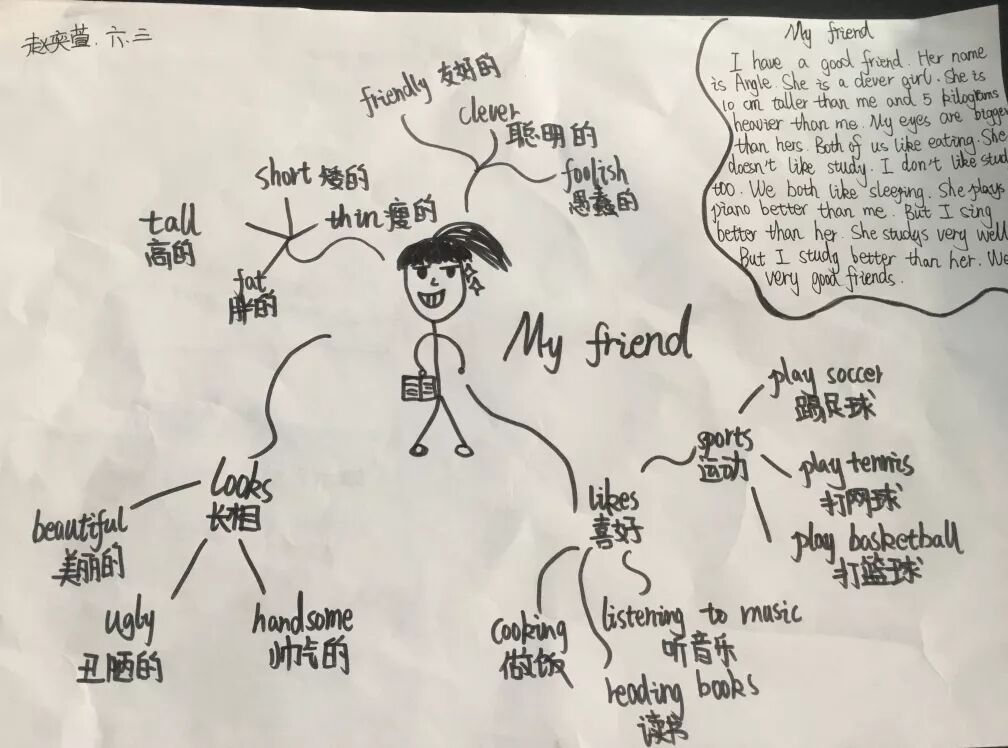 赵奕萱. 六.三
My friend
I have a good friend. Her name
is Angle. She is a clever girl. She is
10 cm taller than me and 5 kilograms
heavier than me. My eyes are bigger
than hers. Both of us like eating. She
doesn't like study. I don't like stud
too. We both like sleeping. She plays
piano better than me. But I sing
better than her. She studys very well
But I study better than her. We
very good friends.
friendly 友好的
clever
聪明的
foolish
愚蠢的
short 矮的
thin 瘦的
tall
高的
fat
胖的
My friend
looks
长相
beautiful
美丽的
ugly
丑陋的
handsome
帅气的
likes
喜好
sports
运动
play soccer
踢足球
play tennis
打网球
play basketball
打篮球
cooking
做饭
listening to music
听音乐
reading books
读书